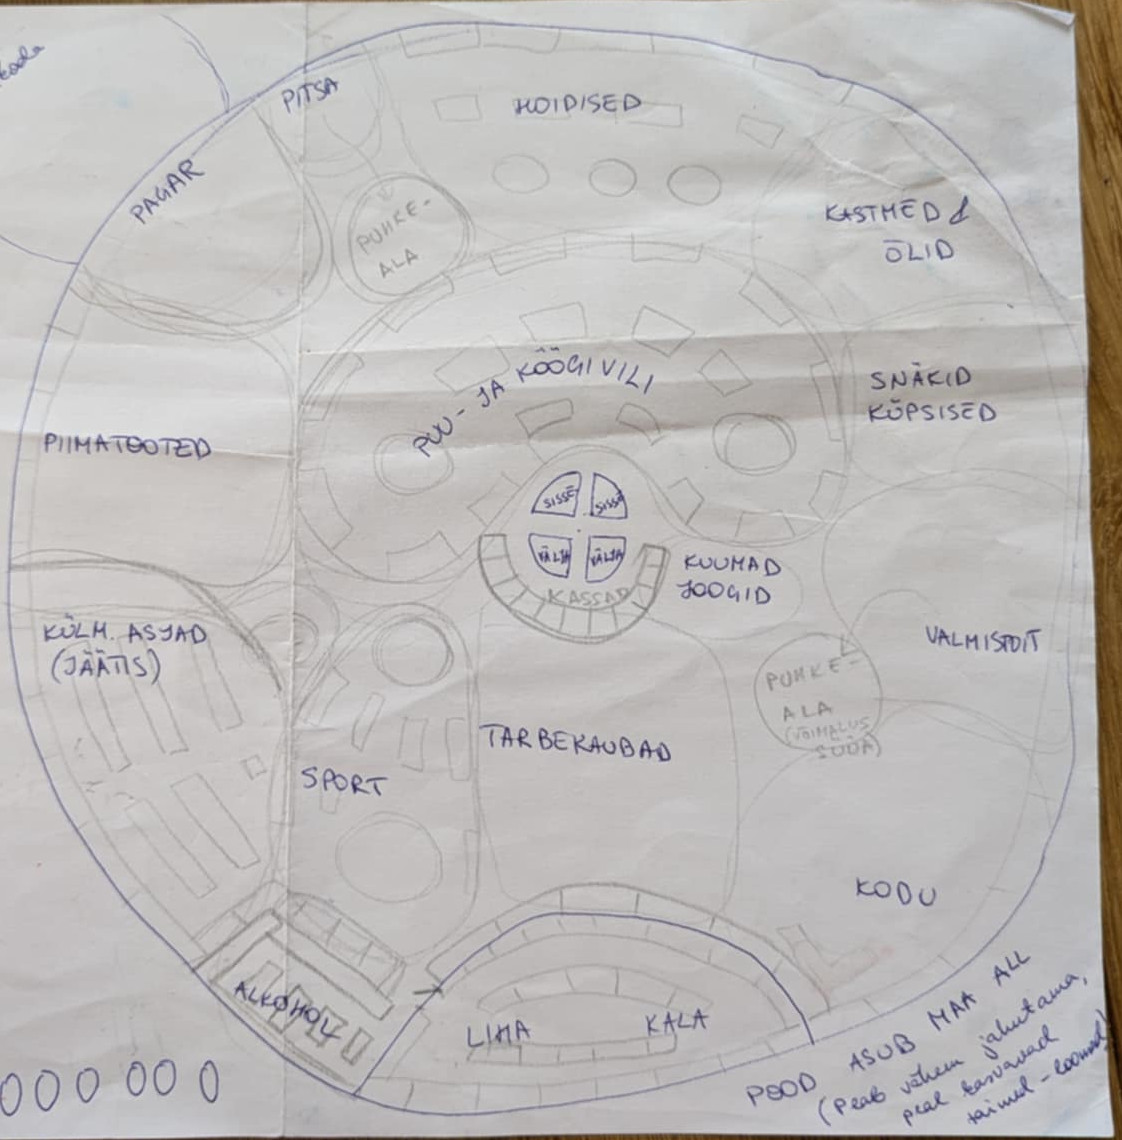 PITSA
HOIDISED
PAGAR
PUHKE-
ALA
KASTMED &
ÕLID
PUU- JA KÖÖGIVILI
SNÄKID
KÜPSISED
PIIMATOOTED
SISSE SISSE
VÄLJA VÄLJA
KASSAD
KUUMAD
JOOGID
KÜLM. ASJAD
(JÄÄTIS)
VALMISTOIT
PUHKE-
ALA
(VÕIMALUS
SÜÜA)
TARBEKAUBAD
SPORT
KODU
ALKOHOL
LIHA KALA
POOD ASUB MAA ALL
(Peab vähem jahutama,
peal kasvavad
taimed - loomad)